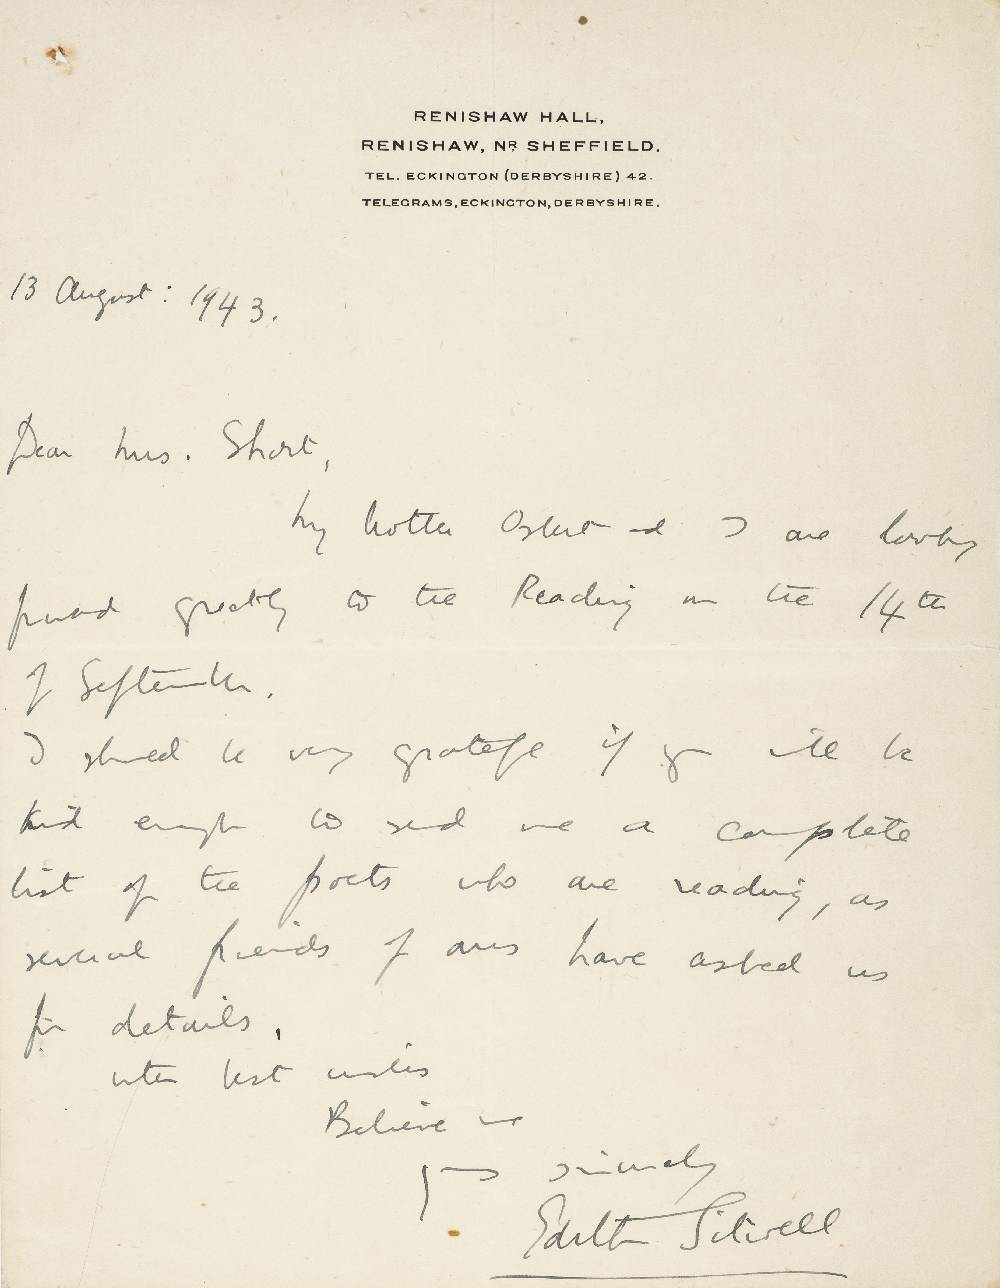 RENISHAW HALL,
RENISHAW, NR SHEFFIELD.
TEL. ECKINGTON (DERBYSHIRE) 42.
TELEGRAMS, ECKINGTON, DERBYSHIRE.
13 August: 1943.
Dear Mrs. Short,
My brother Osbert and I are looking
forward greatly to the Reading on the 14th
of September.
I should be very grateful if you will be
kind enough to send me a complete
list of the poets who are reading, as
several friends of ours have asked us
for details.
With best wishes
Believe me
Yours sincerely
Edith Sitwell